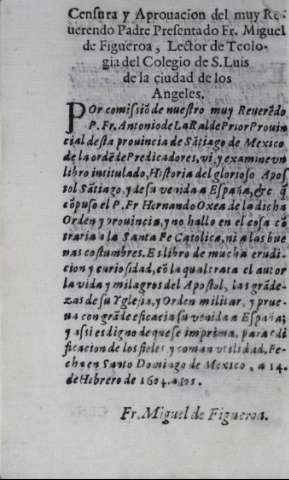 Censura y Aprouacion del muy Re-
uerendo Padre Presentado Fr. Miguel
de Figueroa, Lector de Teolo-
gia del Colegio de S. Luis
de la çiudad de los
Angeles.
POr comissiõ de nuestro muy Reuerẽdo
P. Fr. Antonio de La Ral de Prior Prouin
cial desta prouincia de Sãtiago de Mexico
de la ordẽ de Predicadores, vi, y examine vn
libro intitulado, Historia del glorioso Apos
tol Sãtiago, y de su venida a España, &c q̃
cõpuso el P. Fr Hernando Oxea de la dicha
Orden y prouincia, y no hallo en el cosa cõ
traria a la Santa Fe Catolica, ni a las bue
nas costumbres. Es libro de mucha erudi
cion y curiosidad, cõ la qual trata el autor
la vida y milagros del Apostol, las grãde-
zas de su Yglesia, y Orden militar, y prue-
ua con grãde eficacia su venida a España;
y assi es digno de que se imprima, para edi
ficacion de los fieles y comun vtilidad, Fe-
cha en Santo Domingo de Mexico, a 14.
de Hebrero de 1604. años.
Fr. Miguel de Figueroa.